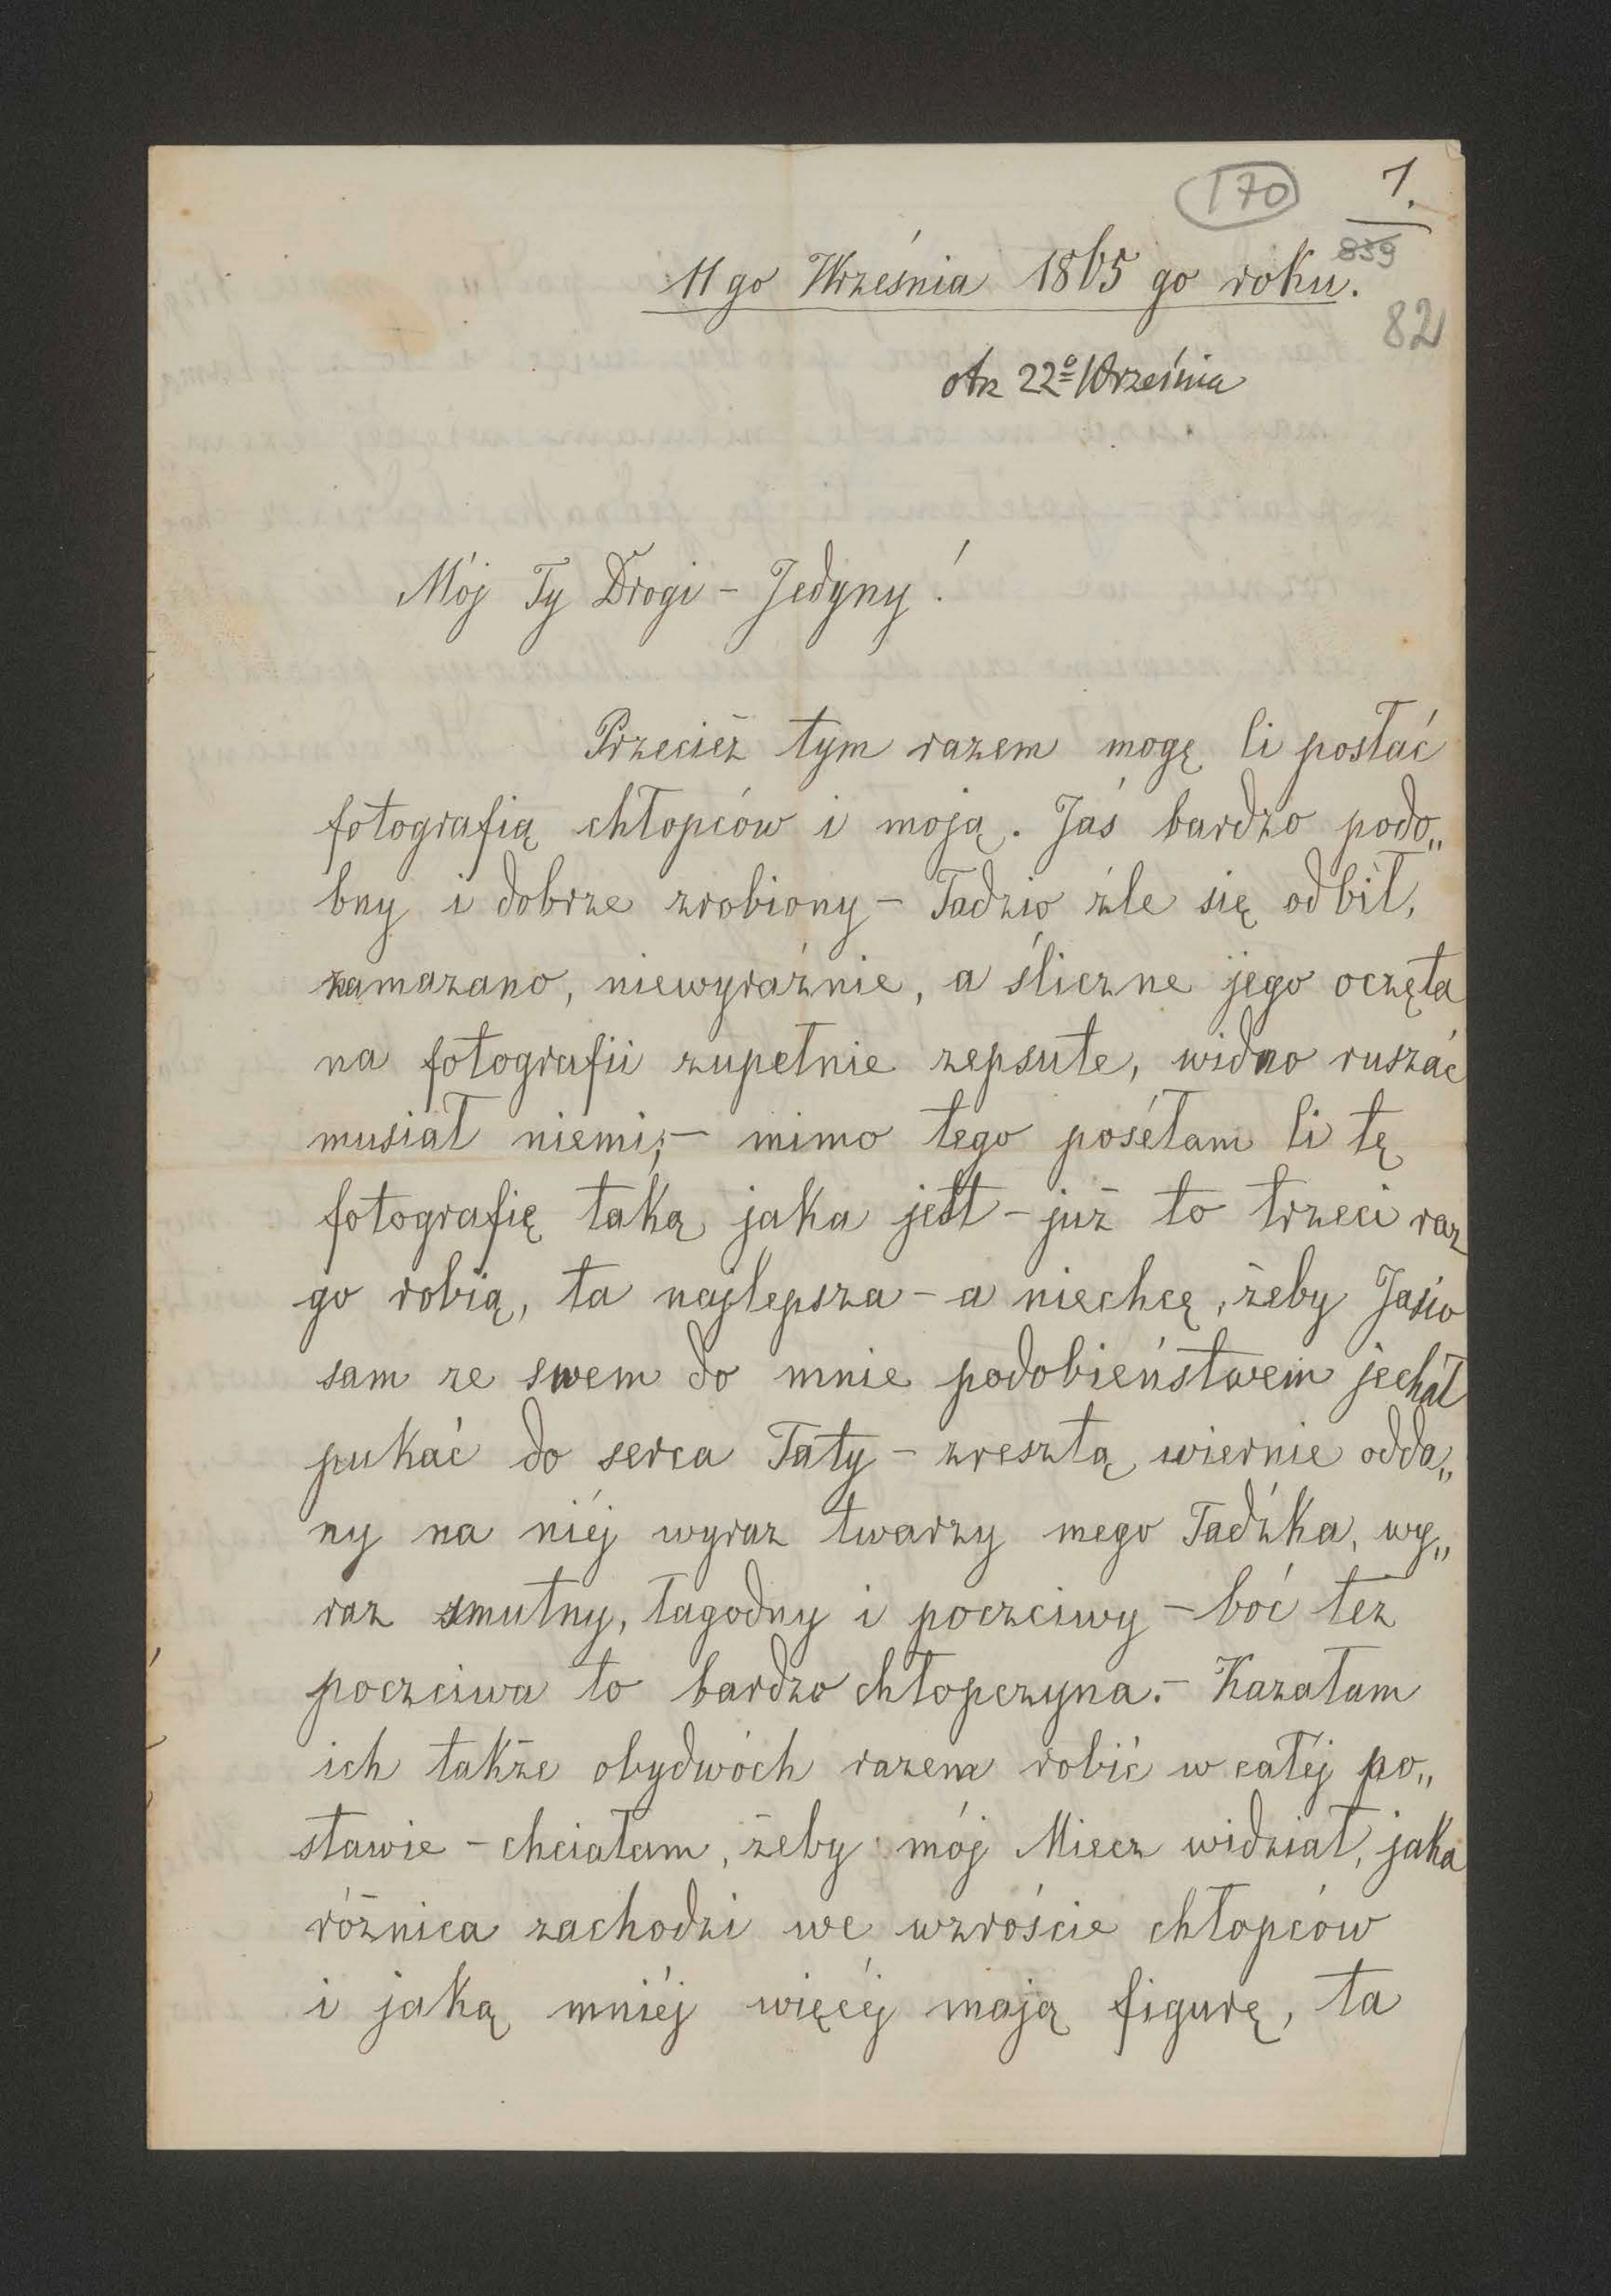 170
1.
839
11 go Września 1865 go roku.
82
otr 22º Września
Mój Ty Drogi - Jedyny!
Przecież tym razem mogę Ci posłać
fotografią chłopców i moją. Jaś bardzo podo„
bny i dobrze zrobiony - Tadzio źle się odbił,
zamazano, niewyraźnie, a śliczne jego oczęta
na fotografii zupełnie zepsute, widno ruszać
musiał niemi; - mimo tego poséłam Ci tę
fotografię taką jaka jest - już to trzeci raz
go robią, ta najlepsza - a niechcę, żeby Jasio
sam ze swem do mnie podobieństwem jechał
pukać do serca Taty - zresztą wiernie odda„
ny na niéj wyraz twarzy mego Tadźka, wy„
raz smutny, łagodny i poczciwy - boć też
poczciwa to bardzo chłopczyna. - Kazałam
ich także obydwóch razem robić w całéj po„
stawie - chciałam, żeby mój Miecz widział, jaka
różnica zachodzi we wzroście chłopców
i jaką mniéj więcéj mają figurę, ta